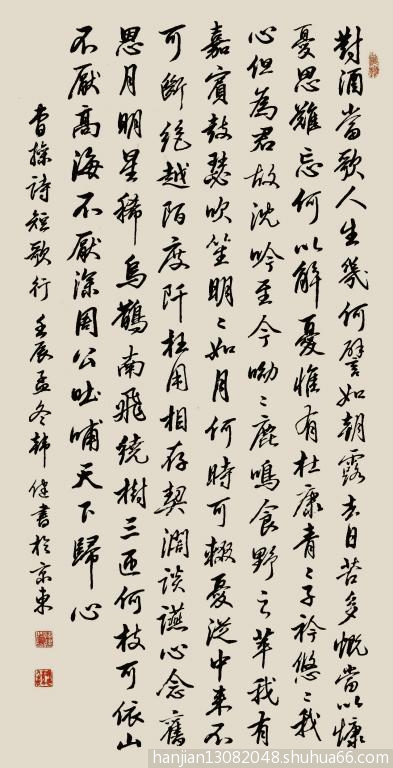 對酒當歌人生幾何譬如朝露去日苦多慨當以慷
憂思難忘何以解憂惟有杜康青〻子衿悠〻我
心但為君故沈吟至今呦〻鹿鳴食野之苹我有
嘉賓鼓瑟吹笙明〻如月何時可輟憂從中來不
可斷絕越陌度阡枉用相存契濶談讌心念舊
恩月明星稀烏鵲南飛繞樹三匝何枝可依山
不厭高海不厭深周公吐哺天下歸心
曹操詩短歌行壬辰孟冬韓健書於京東
hanjian13082048.shuhua66.com